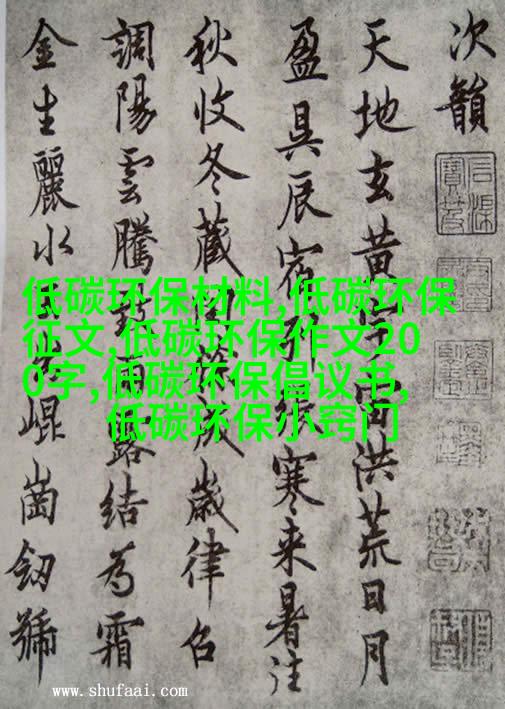 次韻
天地玄黄洪荒日月
盈昃辰宿張寒来暑往
秋收冬藏閏成歲律召
調陽雲騰露結為霜
金生麗水崐崗劒號
低碳环保材料,低碳环保
征文,低碳环保作文20
0字,低碳环保倡议书,
低碳环保小窍门
www.shufaai.com